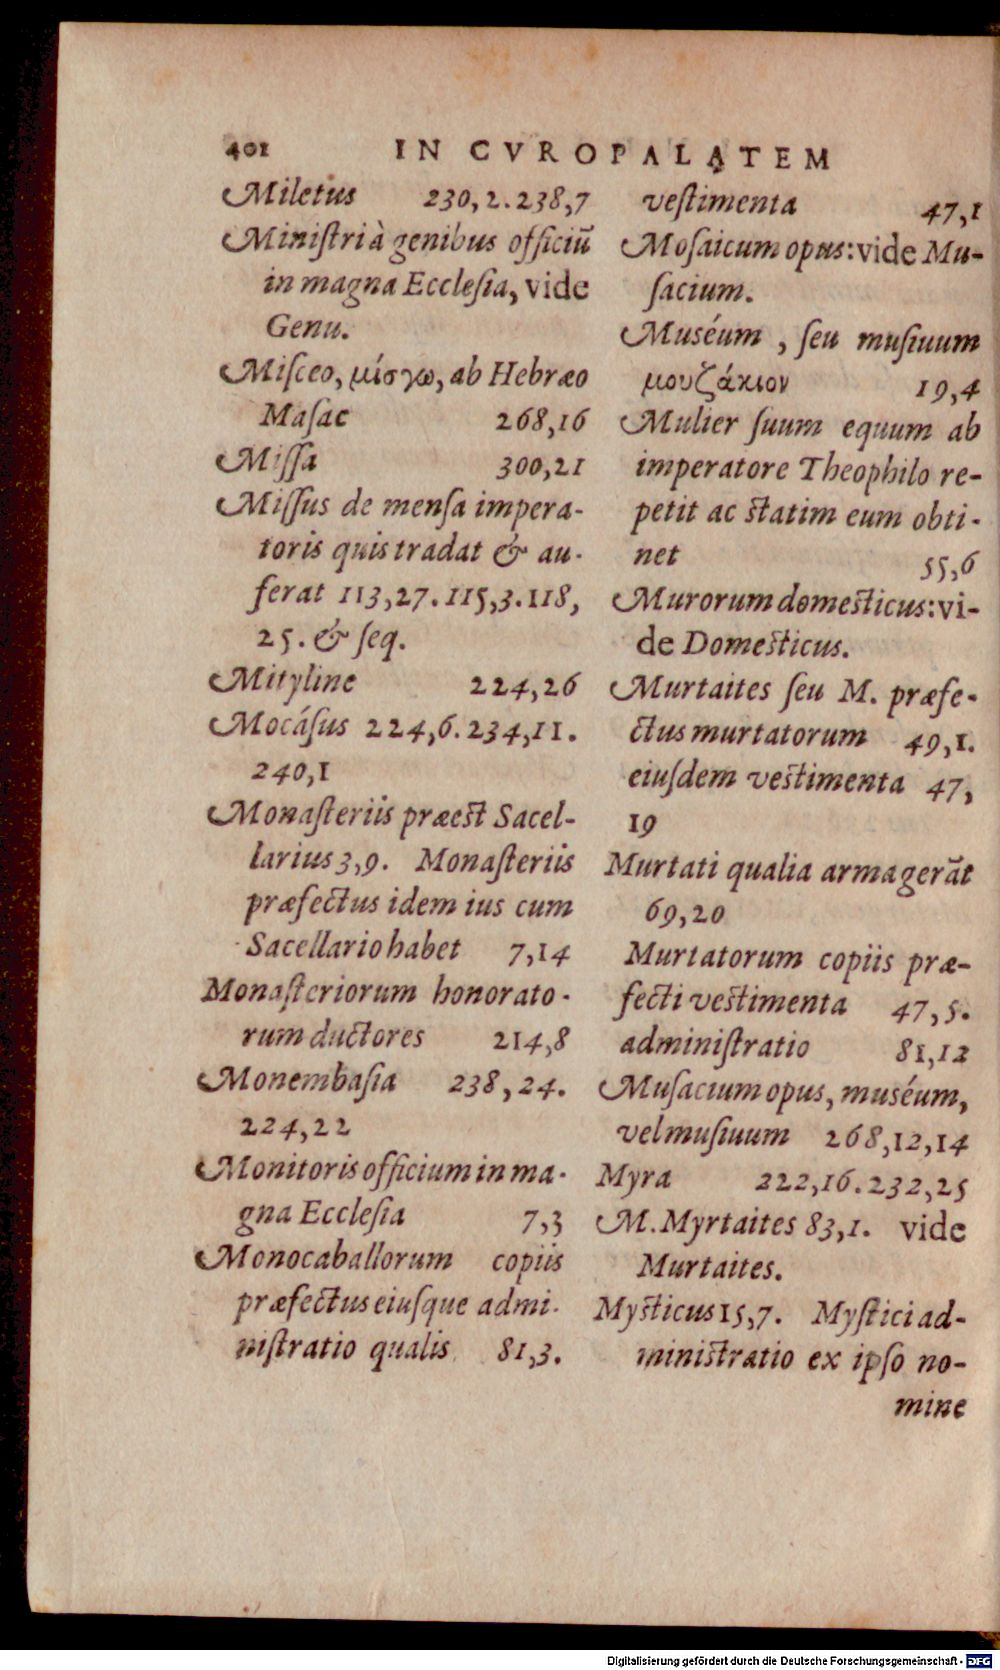 401 IN CVROPALATEM
Miletus 230,2.238,7
Miniſtri à genibus officiū
in magna Eccleſia, vide
Genu.
Miſceo, μίσγω, ab Hebræo
Maſac 268,16
Miſſa 300,21
Miſſus de menſa impera-
toris quis tradat & au-
ferat 113,27.115,3.118,
25. & ſeq.
Mityline 224,26
Mocáſus 224,6.234,11.
240,1
Monaſteriis præest Sacel-
larius 3,9. Monaſteriis
præfectus idem ius cum
Sacellario habet 7,14
Monaſteriorum honorato-
rum ductores 214,8
Monembaſia 238,24.
224,22
Monitoris officium in ma-
gna Eccleſia 7,3
Monocaballorum copiis
præfectus eiuſque admi-
niſtratio qualis 81,3.
veſtimenta 47,1
Moſaicum opus: vide Mu-
ſacium.
Muséum, ſeu muſiuum
μουζάκιον 19,4
Mulier ſuum equum ab
imperatore Theophilo re-
petit ac statim eum obti-
net 55,6
Murorum domesticus: vi-
de Domesticus.
Murtaites ſeu M. præfe-
ctus murtatorum 49,1.
eiuſdem vestimenta 47,
19
Murtati qualia arma gerāt
69,20
Murtatorum copiis præ-
fecti vestimenta 47,5.
adminiſtratio 81,12
Muſacium opus, muséum,
vel muſiuum 268,12,14
Myra 222,16.232,25
M. Myrtaites 83,1. vide
Murtaites.
Mysticus 15,7. Myſtici ad-
ministratio ex ipſo no-
mine
Digitalisierung gefördert durch die Deutsche Forschungsgemeinschaft - DFG